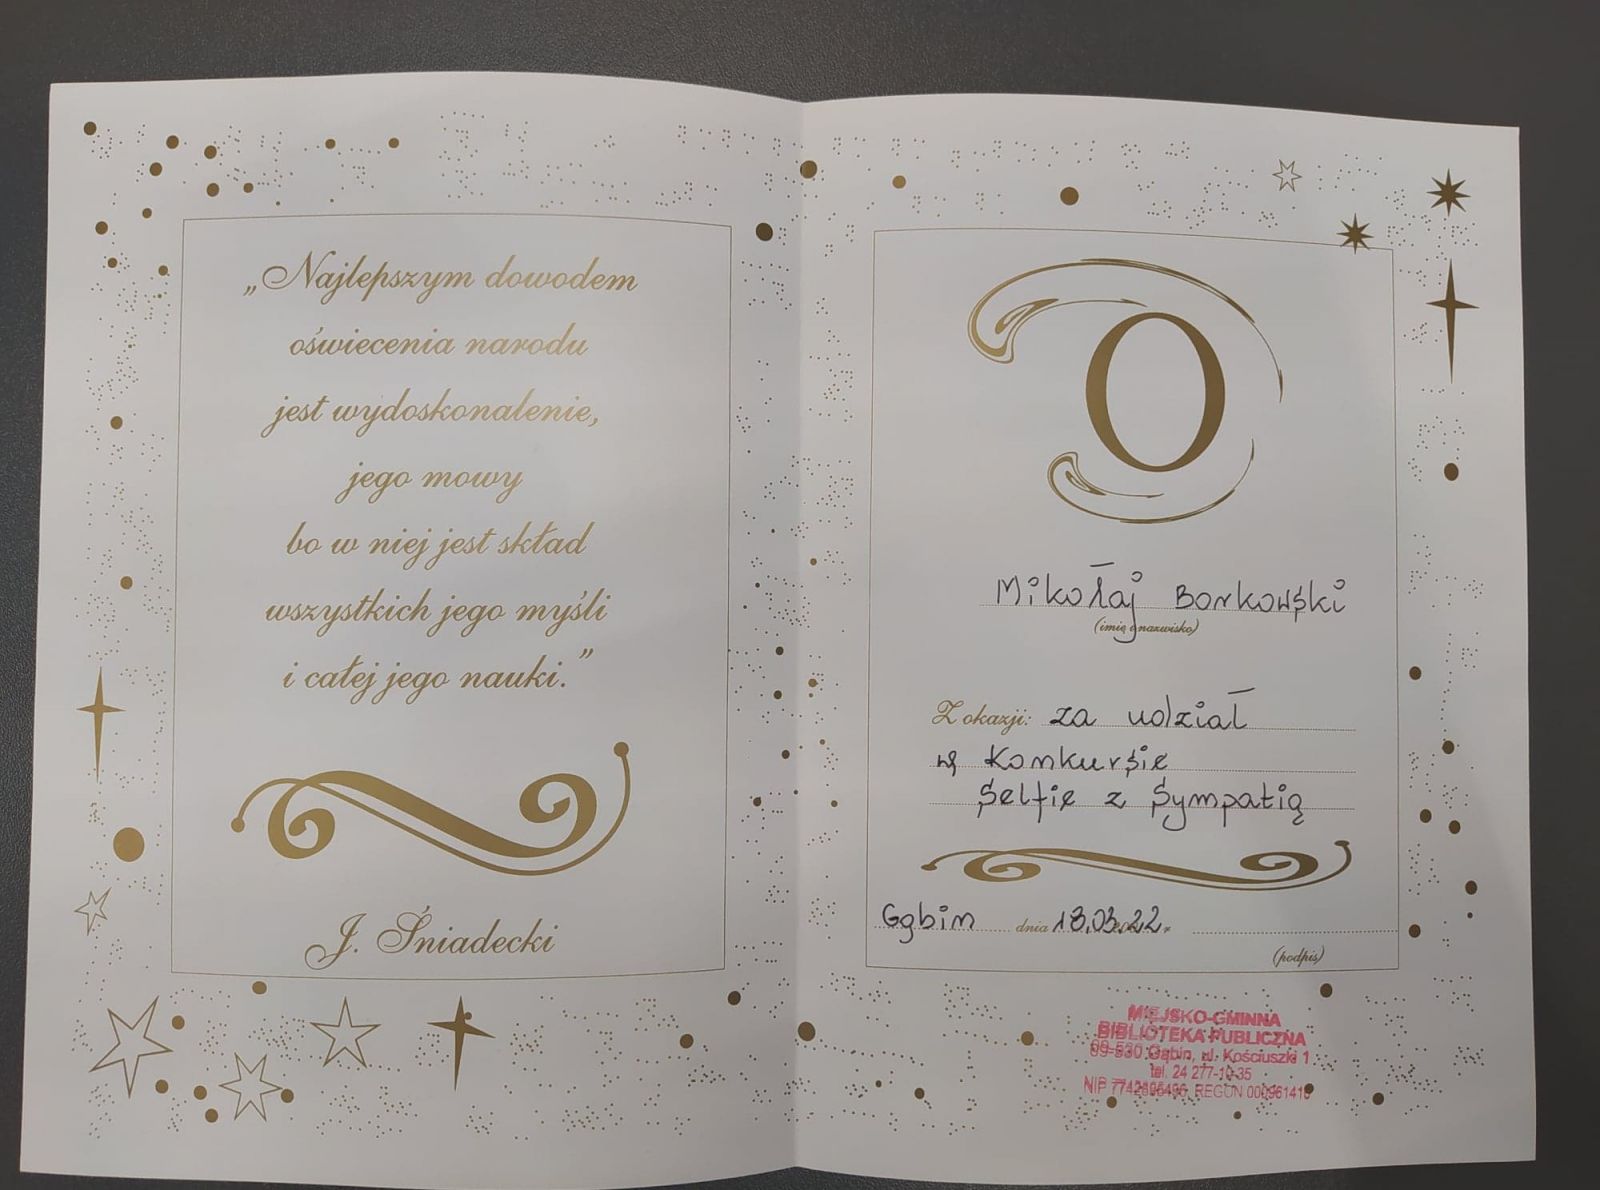 „Najlepszym dowodem
oświecenia narodu
jest wydoskonalenie,
jego mowy
bo w niej jest skład
wszystkich jego myśli
i całej jego nauki.”
J. Śniadecki
O
Mikołaj Borkowski
(imię i nazwisko)
Z okazji: za udział
w konkursie
Selfie z Sympatią
Gąbin dnia 18.03.22r.
(podpis)
MIEJSKO-GMINNA
BIBLIOTEKA PUBLICZNA
09-530 Gąbin, ul. Kościuszki 1
tel. 24 277-10-35
NIP REGON